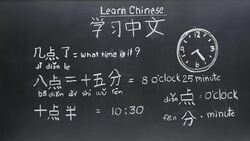 Learn Chinese
学习中文
几点了 = what time is it ?
jǐ diǎn le
八点二十五分 = 8 o'clock 25 minute
bā diǎn èr shí wǔ fēn
diǎn 点 : o'clock
十点半 = 10:30
fēn 分 : minute